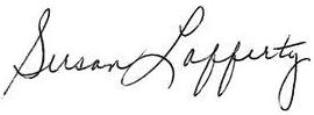 Susan Lafferty